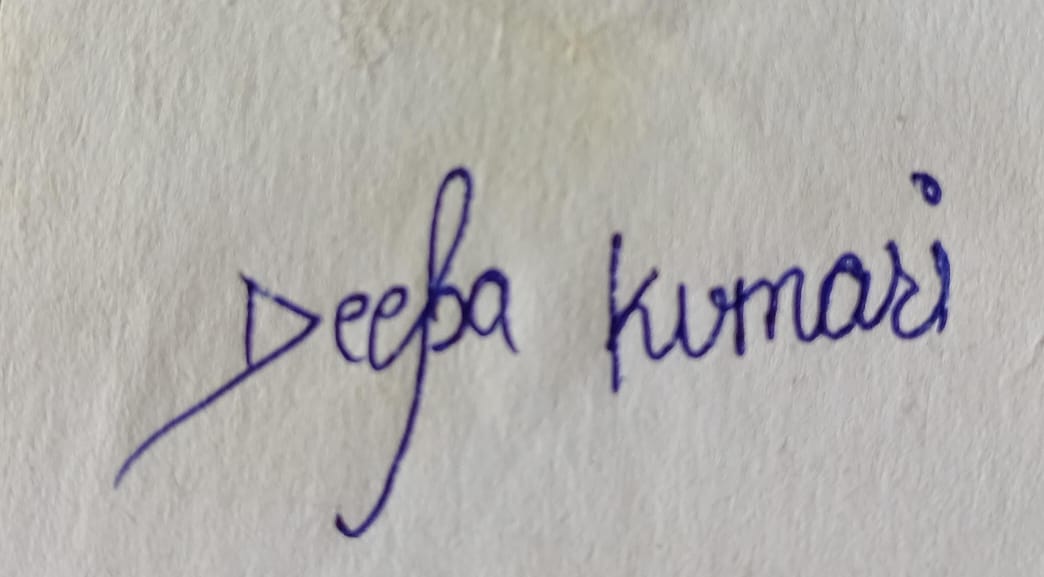 Deepa Kumari